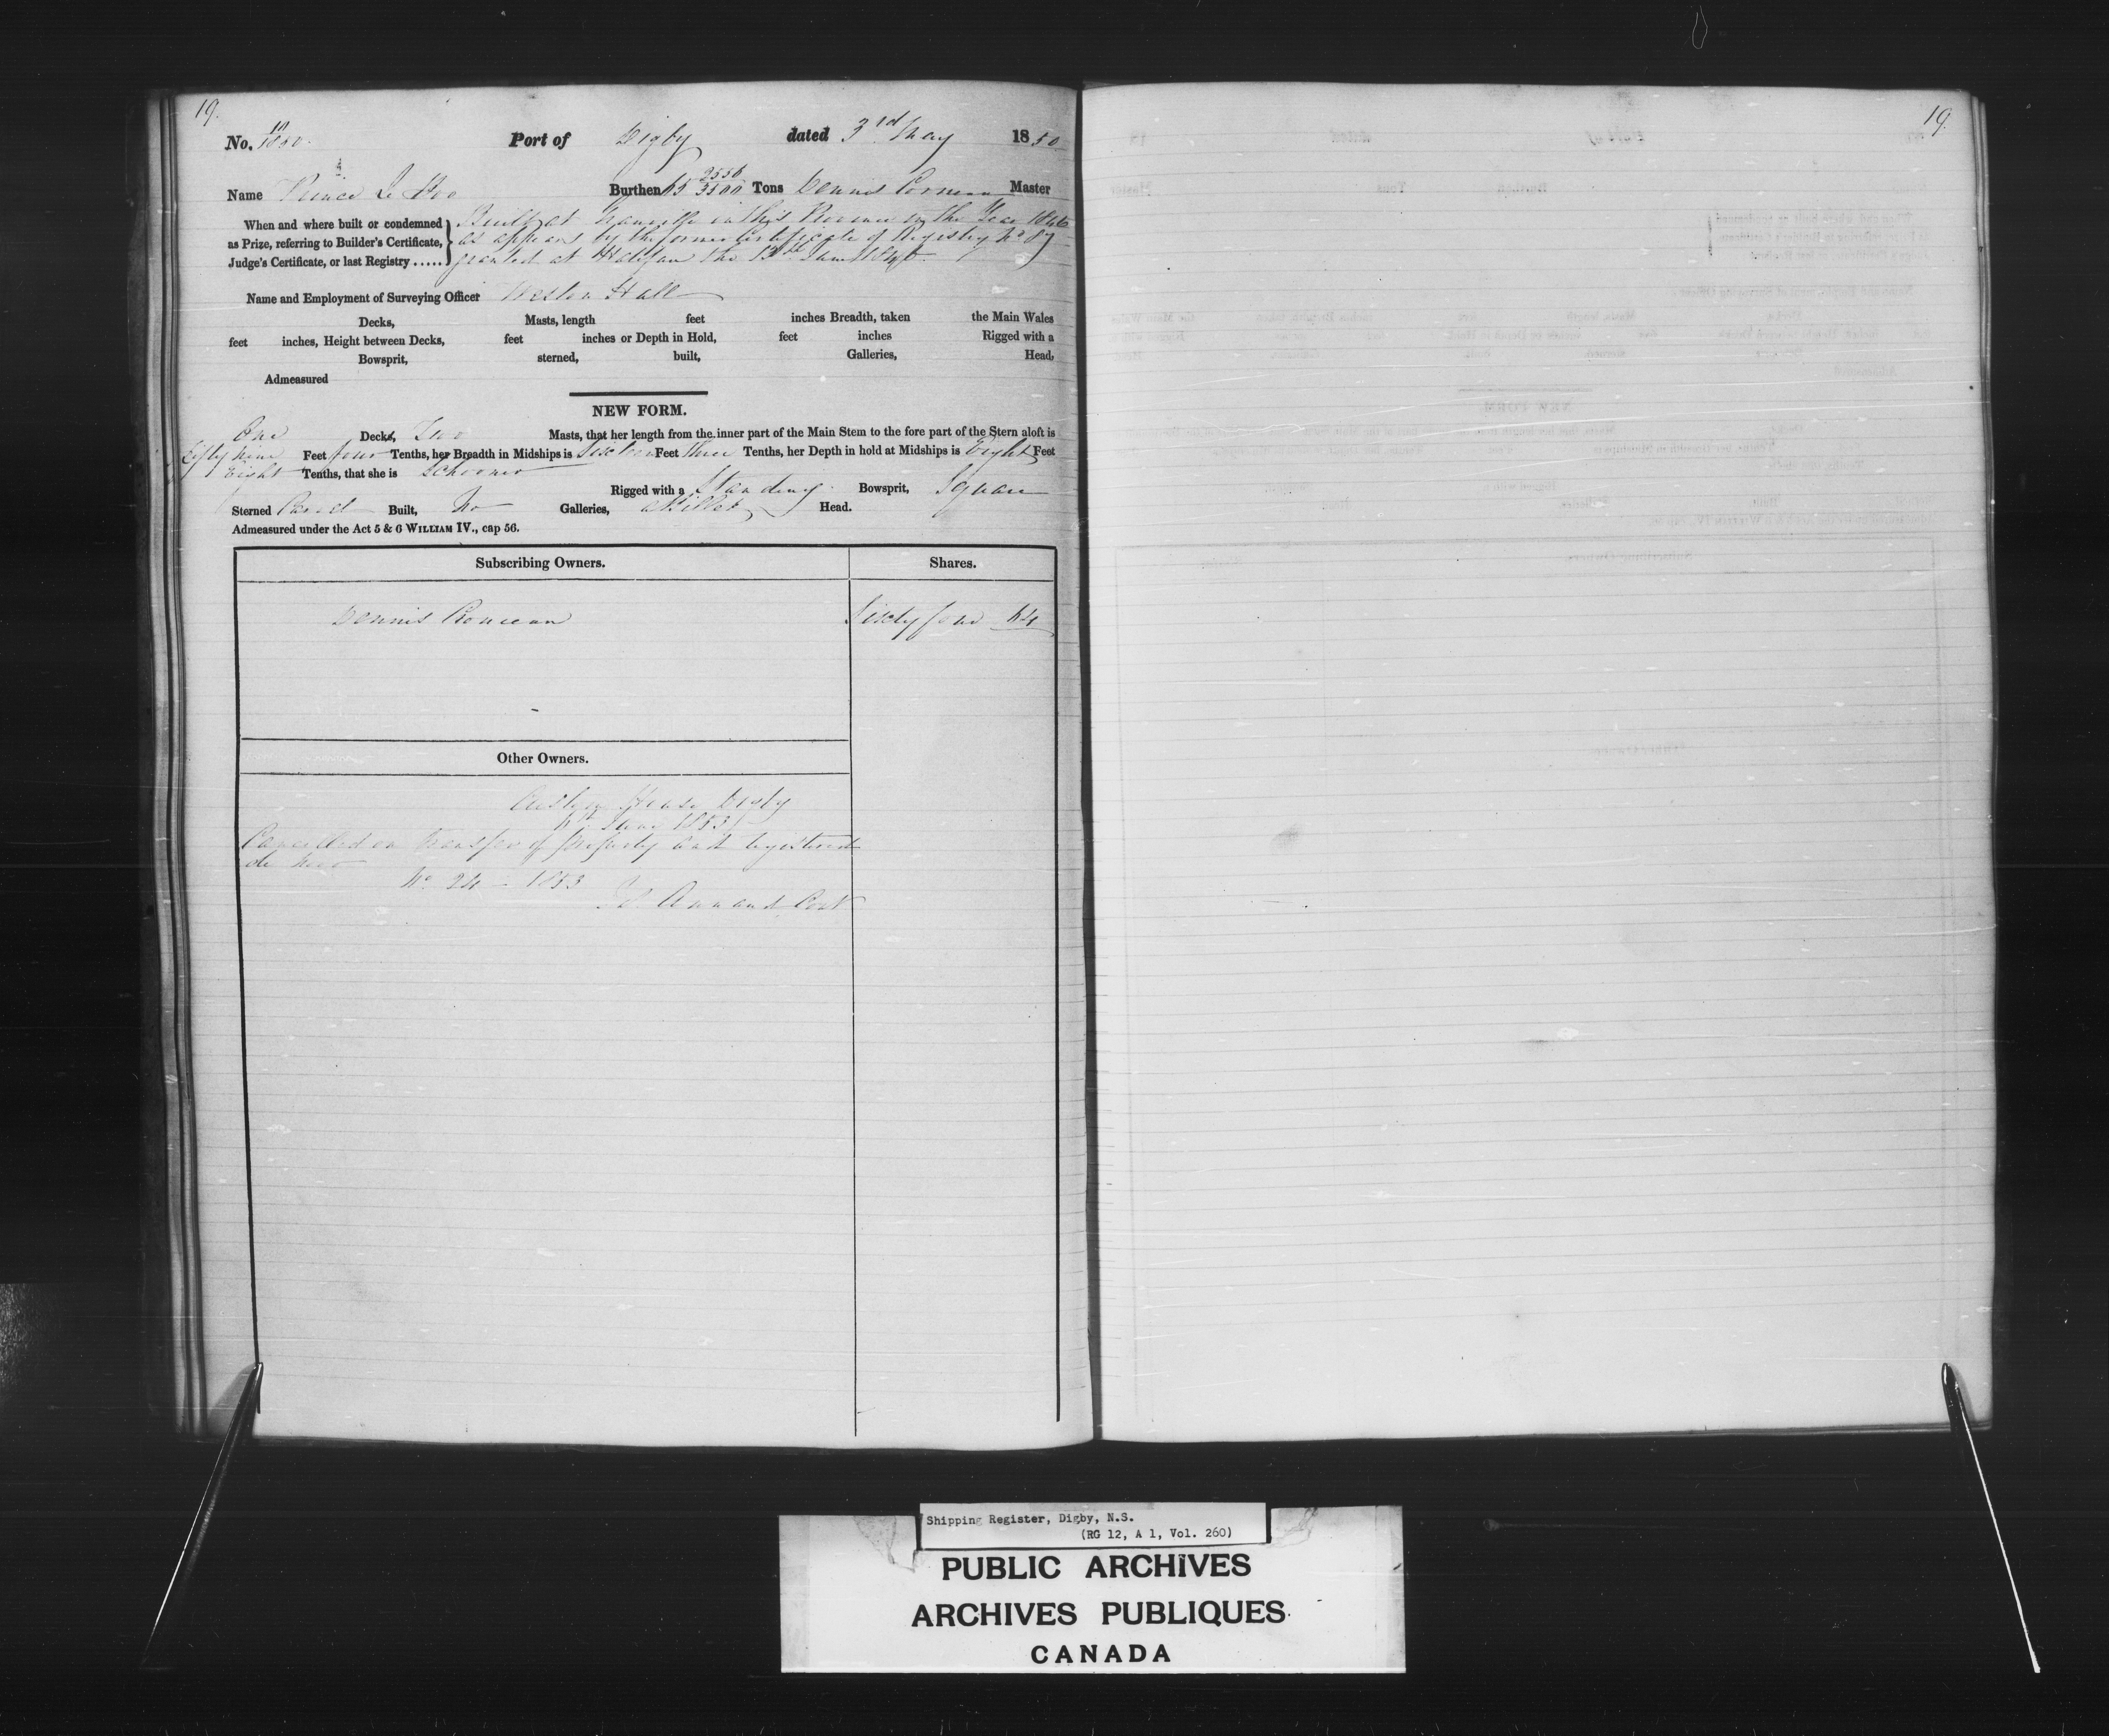 19.
19.
No. 10 1850. Port of Digby dated 3rd May 1850
Name Prince Le Boo Burthen 65 Tons Dennis Master
When and where built or condemned Built at in this Province in the Year 1846
as Prize, referring to Builder's Certificate, as appears by the former Certificate of Registry No 87
Judge's Certificate, or last Registry ..... granted at Halifax the
Name and Employment of Surveying Officer Weston Hall
Decks, Masts, length feet inches Breadth, taken the Main Wales
feet inches, Height between Decks, feet inches or Depth in Hold, feet inches Rigged with a
Bowsprit, sterned, built, Galleries, Head,
Admeasured
NEW FORM.
One Decks, Two Masts, that her length from the inner part of the Main Stem to the fore part of the Stern aloft is
Fifty nine Feet four Tenths, her Breadth in Midships is Sixteen Feet three Tenths, her Depth in hold at Midships is Eight Feet
Eight Tenths, that she is Schooner
Rigged with a Standing Bowsprit, Square
Sterned Carvel Built, No Galleries, a Billet Head.
Admeasured under the Act 5 & 6 WILLIAM IV., cap 56.
Subscribing Owners. Shares.
Dennis Sixty four 64
Other Owners.
Custom House Digby
June 1853
Cancelled on transfer of property and registered
de novo
No 24 - 1853
Shipping Register, Digby, N.S.
(RG 12, A 1, Vol. 260)
PUBLIC ARCHIVES
ARCHIVES PUBLIQUES
CANADA